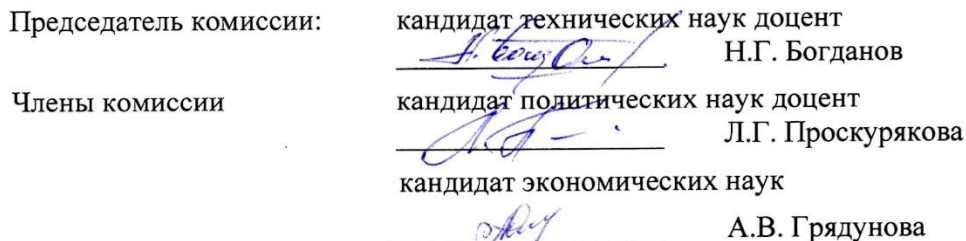 Председатель комиссии: кандидат технических наук доцент
Н.Г. Богданов
Члены комиссии кандидат политических наук доцент
Л.Г. Проскурякова
кандидат экономических наук
А.В. Грядунова